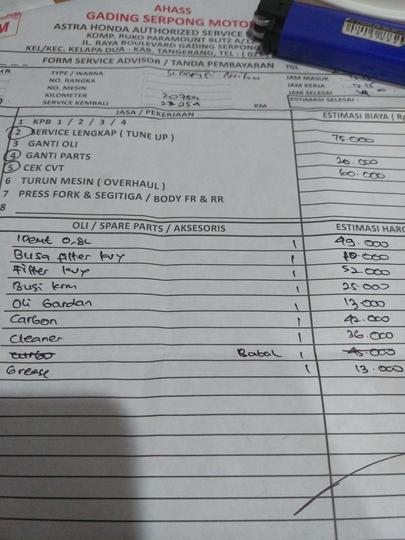 AHASS
GADING SERPONG MOTOR
ASTRA HONDA AUTHORIZED SERVICE
KOMP. RUKO PARAMOUNT BLITZ A/1
JL. RAYA BOULEVARD GADING SERPONG
KEL/KEC. KELAPA DUA - KAB. TANGERANG, TEL
FORM SERVICE ADVISOR / TANDA PEMBAYARAN
TGL
TYPE / WARNA
NO. RANGKA
NO. MESIN
KILOMETER
SERVICE KEMBALI
KM
JAM MASUK
JAM KERJA
JAM SELESAI
ESTIMASI SELESAI :
JASA / PEKERJAAN ESTIMASI BIAYA
1 KPB 1 / 2 / 3 / 4
2 SERVICE LENGKAP ( TUNE UP ) 75.000
3 GANTI OLI
4 GANTI PARTS
5 CEK CVT 60.000
6 TURUN MESIN ( OVERHAUL )
7 PRESS FORK & SEGITIGA / BODY FR & RR
8
OLI / SPARE PARTS / AKSESORIS ESTIMASI HARG
0,8L 1 49.000
Busa filter kvy 1
Filter kvy 1 52.000
Busi 1 25.000
Oli Gardan 1 13.000
Carbon 1 42.000
Cleaner 1 36.000
Batal 1 45.000
Grease 1 13.000